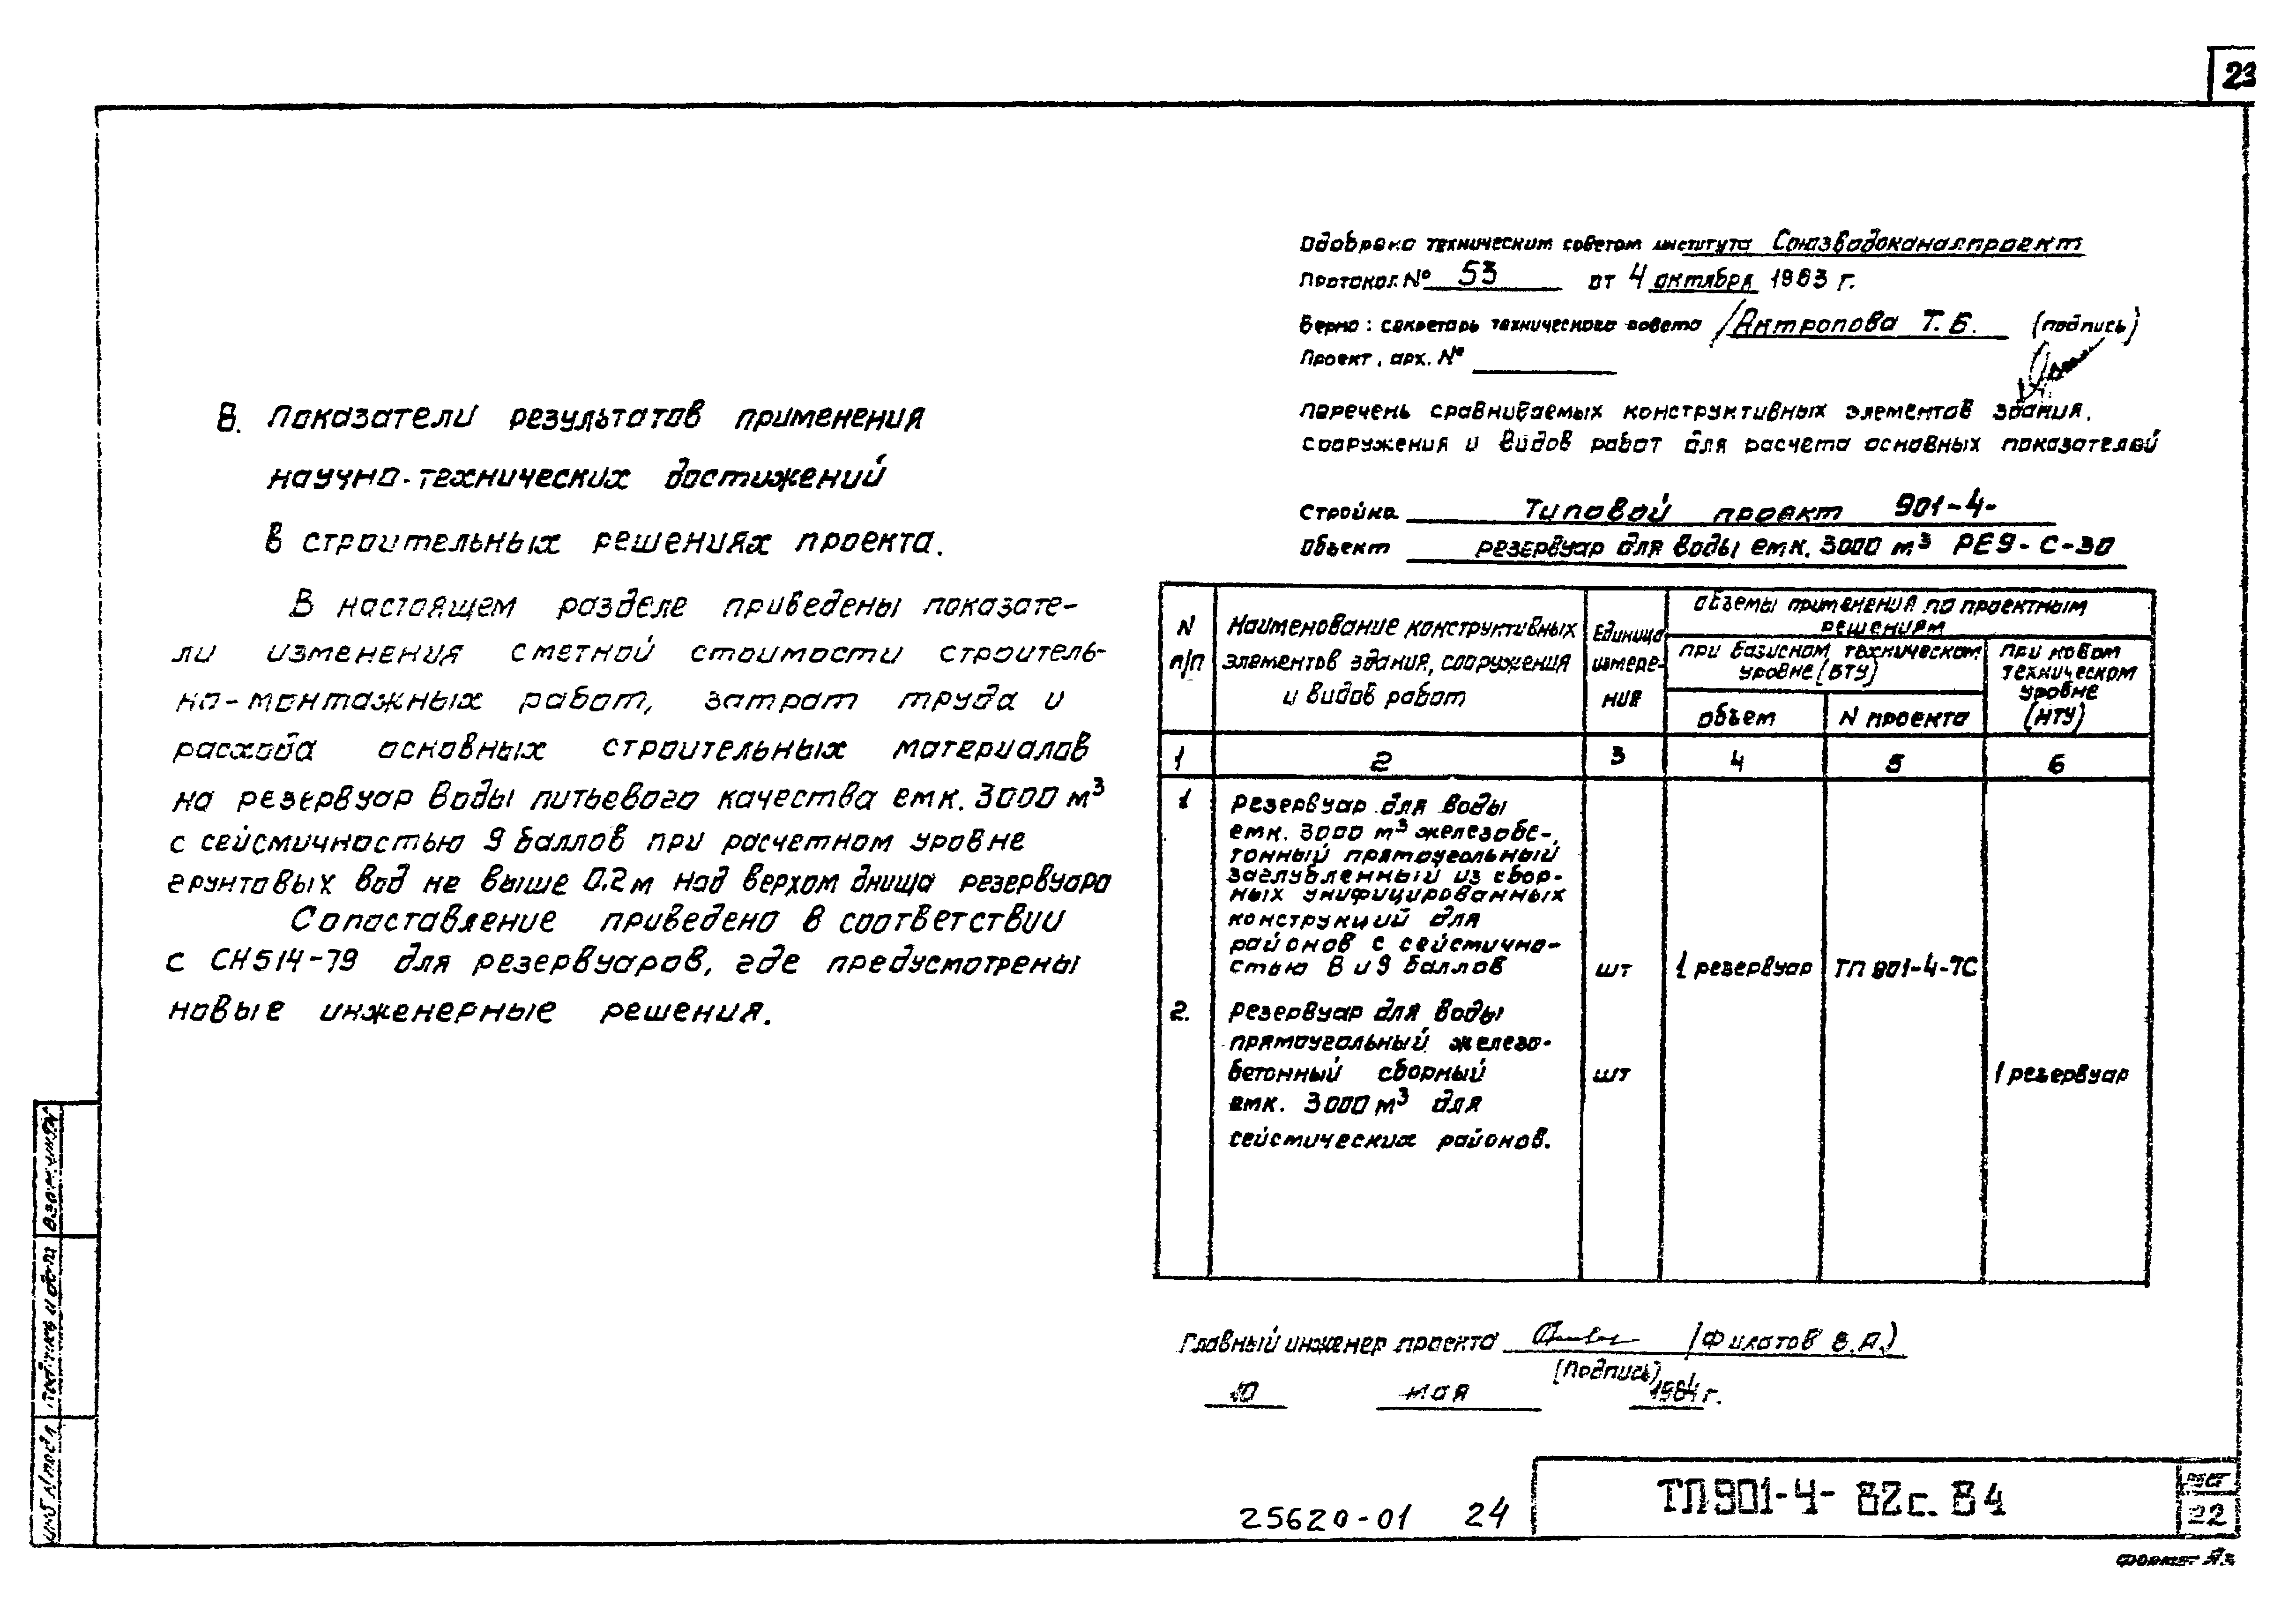 23
В. Показатели результатов применения
научно-технических достижений
в строительных решениях проекта.
В настоящем разделе приведены показате-
ли изменения сметной стоимости строитель-
но-монтажных работ, затрат труда и
расхода основных строительных материалов
на резервуар воды питьевого качества емк. 3000 м³
с сейсмичностью 9 баллов при расчетном уровне
грунтовых вод не выше 0.2 м над верхом днища резервуара
Сопоставление приведено в соответствии
с СН514-79 для резервуаров, где предусмотрены
новые инженерные решения.
Одобрено техническим советом института Союзводоканалпроект
Протокол № 53 от 4 октября 1983 г.
Верно: секретарь технического совета /Антропова Т.Б. (подпись)
Проект, арх. №
Перечень сравниваемых конструктивных элементов здания,
сооружения и видов работ для расчета основных показателей
Стройка Типовой проект 901-4-
Объект резервуар для воды емк. 3000 м³ РЕ9-С-30
N п/п
Наименование конструктивных
элементов здания, сооружения
и видов работ
Единица
измере-
ния
Объемы применения по проектным
решениям
при базисном техническом
уровне (БТУ)
при новом
техническом
уровне
(НТУ)
объем
N проекта
1 2 3 4 5 6
1 Резервуар для воды
емк. 3000 м³ железобе-
тонный прямоугольный
заглубленный из сбор-
ных унифицированных
конструкций для
районов с сейсмично-
стью 8 и 9 баллов шт 1 резервуар ТП 901-4-7С
2. Резервуар для воды
прямоугольный железо-
бетонный сборный шт 1 резервуар
емк. 3000 м³ для
сейсмических районов.
Главный инженер проекта (Филатов В.А.)
(подпись)
10 мая 1984 г.
Взам.инв.N
Подпись и дата
Инв. N подл.
25620-01 24
ТП901-4-82с.84
Лист
22
Формат А3